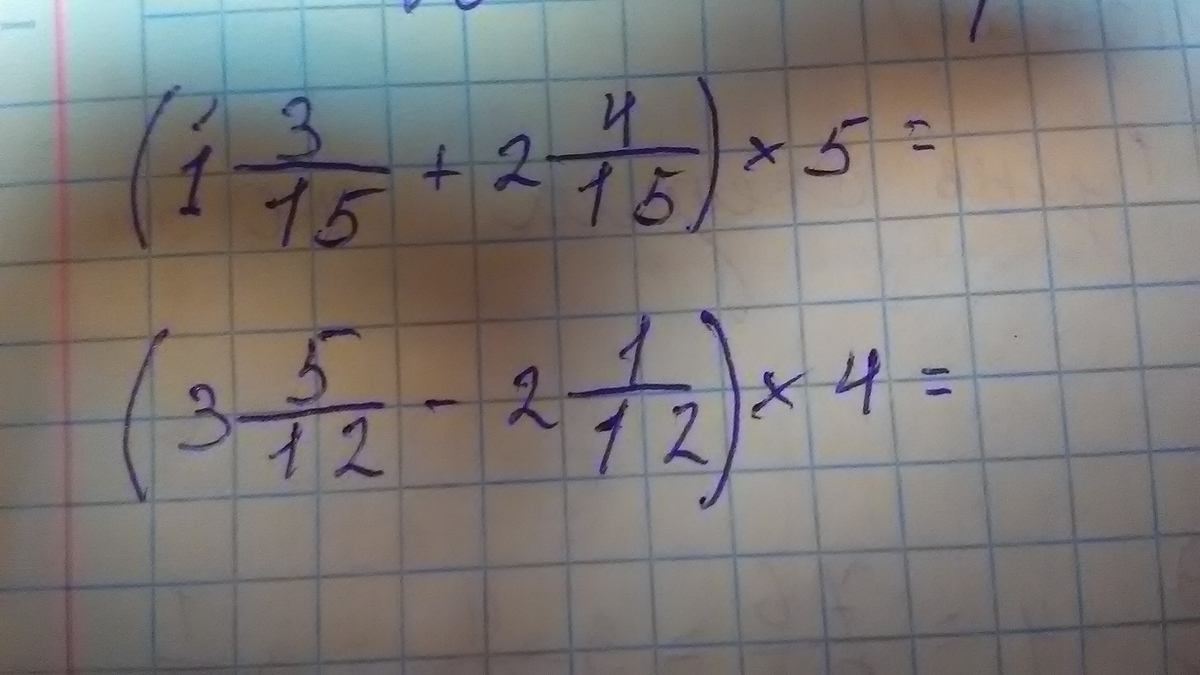 (1 3/15 + 2 4/15) × 5 =
(3 5/12 - 2 1/12) × 4 =